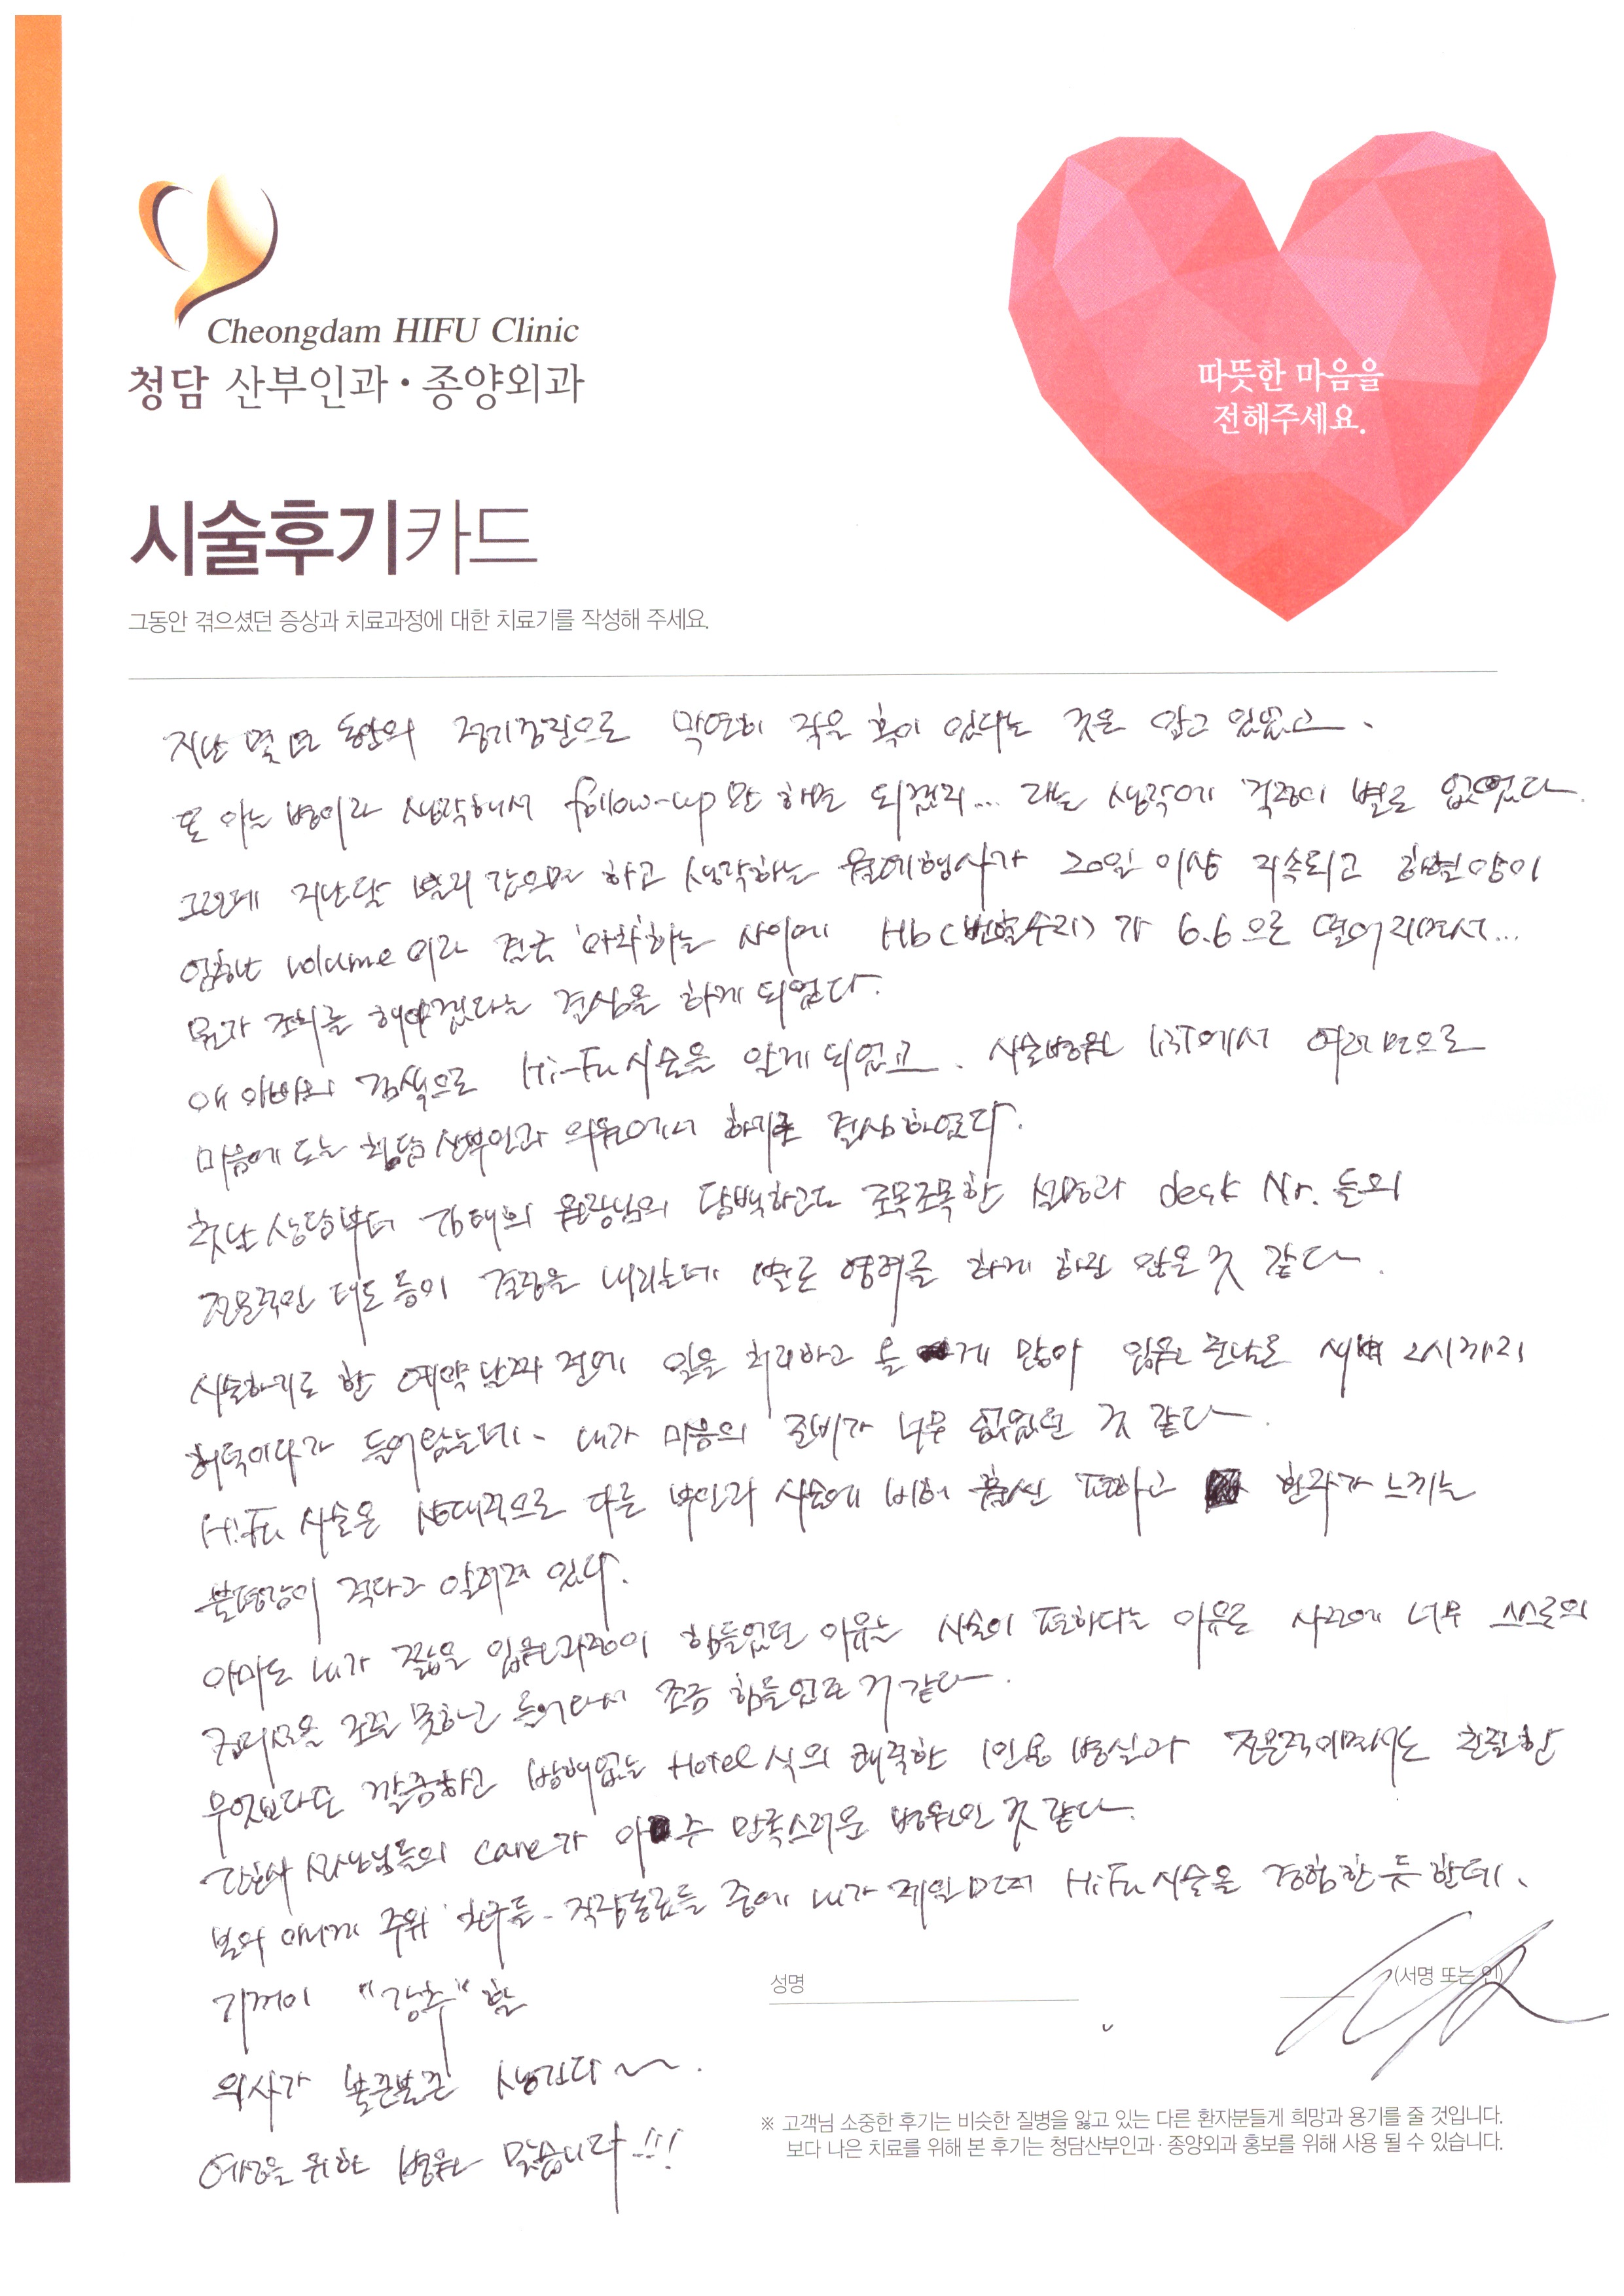 Cheongdam HIFU Clinic
청담 산부인과·종양외과
따뜻한 마음을
전해주세요.
시술후기카드
그동안 겪으셨던 증상과 치료과정에 대한 치료기를 작성해 주세요.
지난 몇 년 동안의 정기검진으로 막연히 작은 혹이 있다는 것은 알고 있었고.
또 아는 병이라 생각해서 follow-up만 하면 되겠지... 라는 생각에 걱정이 별로 없었다
그런데 지난달 빨리 갔으면 하고 생각하는 월례행사가 20일 이상 지속되고 하혈양이
엄청난 volume이라 결국 '아차'하는 사이에 Hb(빈혈수치)가 6.6으로 떨어지면서...
뭔가 조치를 해야겠다는 결심을 하게 되었다.
애 아빠의 검색으로 Hi-Fu시술을 알게 되었고. 시술병원 list에서 여러면으로
마음에 드는 청담 산부인과 의원에서 하기로 결심하였다.
첫날 상담부터 김태희 원장님의 담백하고도 조목조목한 설명과 desk Nr.들의
전문적인 태도 등이 결정을 내리는데 별로 염려를 하게 하진 않은 것 같다.
시술하기로 한 예약 날짜 전에 일을 처리하고 올 게 많아 입원 전날도 새벽 2시까지
허덕이다가 들어왔는데. 내가 마음의 준비가 너무 없었던 것 같다.
HiFu 시술은 상대적으로 다른 부인과 시술에 비해 훨씬 편하고 환자가 느끼는
불편감이 적다고 알려져 있다.
아마도 내가 짧은 입원과정이 힘들었던 이유는 시술이 편하다는 이유로 사전에 너무 스스로의
컨디션을 조절 못하고 들어와서 조금 힘들었던 거 같다.
무엇보다도 깔끔하고 방해없는 Hotel식의 쾌적한 1인용 병실과 전문적이면서도 친절한
간호사 선생님들의 care가 아주 만족스러운 병원인 것 같다.
본의 아니게 주위 친구들. 직장동료들 중에 내가 제일 먼저 HiFu시술을 경험한 듯 한데.
기꺼이 "강추"할
의사가 불끈불끈 생긴다~~.
여성을 위한 병원 맞습니다!!!
성명
(서명 또는 인)
※ 고객님 소중한 후기는 비슷한 질병을 앓고 있는 다른 환자분들게 희망과 용기를 줄 것입니다.
보다 나은 치료를 위해 본 후기는 청담산부인과·종양외과 홍보를 위해 사용 될 수 있습니다.